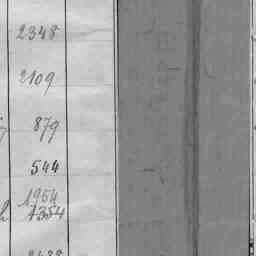 2348
2109
879
544
1954
1354